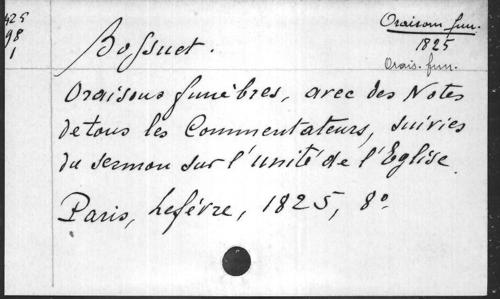 425
98
1
Oraison fun.
1825
Orais. fun.
Bossuet.
Oraisons funèbres, avec des Notes
de tous les Commentateurs, suivies
du sermon sur l'unité de l'Eglise.
Paris, Lefévre, 1825, 8º